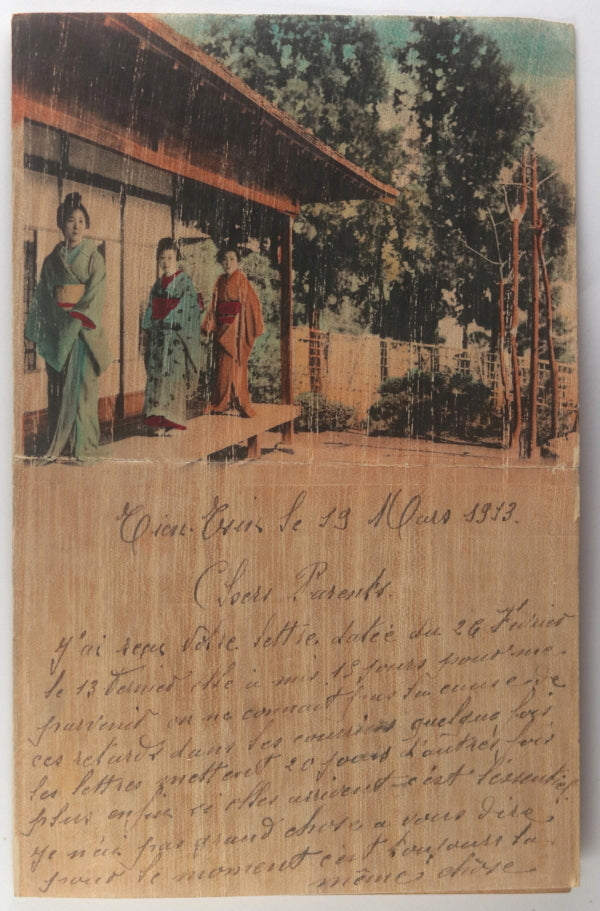 Tien-Tsin le 19 Mars 1913.
Chers Parents.
J'ai reçu votre lettre datée du 26 Février
le 13 dernier elle a mis 15 jours pour me
parvenir on ne connait pas la cause de
ces retards dans les courriers quelque fois
les lettres mettent 20 jours d'autres fois
plus enfin si elles arrivent c'est l'essentiel
Je n'ai pas grand chose a vous dire
pour le moment c'est toujours la
même chose